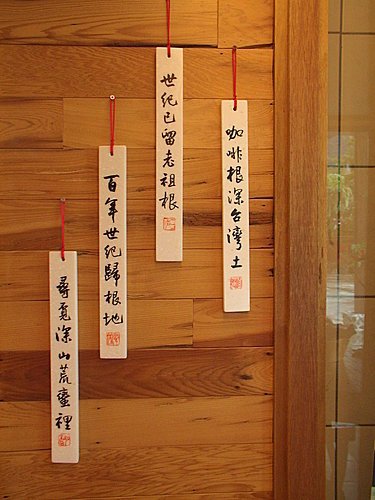 咖啡根深台灣土
世紀已留老祖根
百年世紀歸根地
尋覓深山荒蠻裡